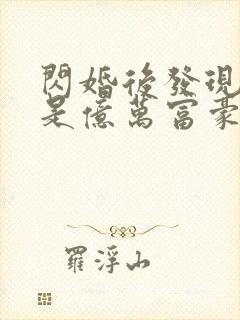 閃婚後發現
是億萬富豪
羅浮山